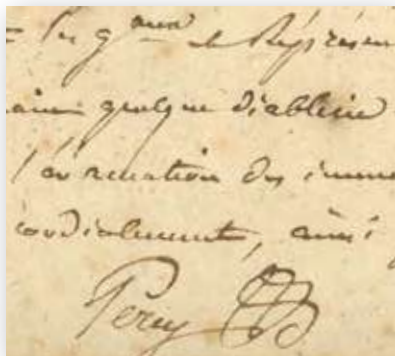 les g.aux et Représen
quelque diablerie
l'évacuation des imme
cordialement, ainsi
Percy